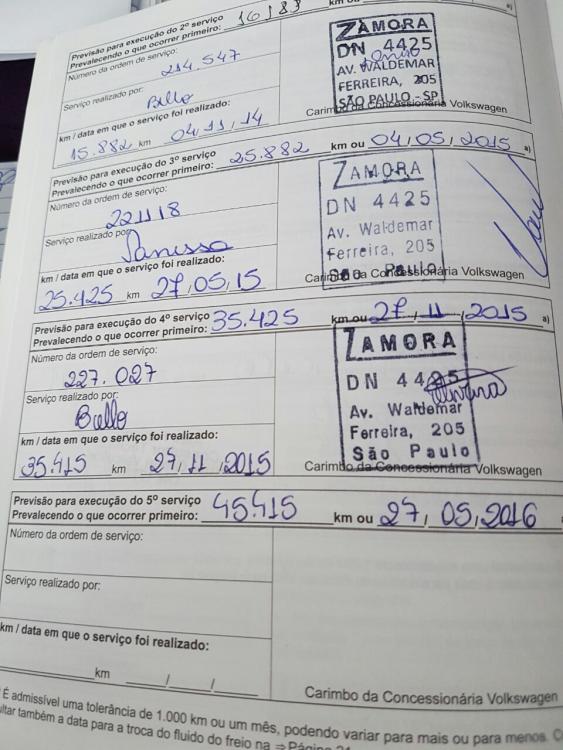 Previsão para execução do 2º serviço
Prevalecendo o que ocorrer primeiro: km ou a)
Número da ordem de serviço:
214.547
Serviço realizado por:
km / data em que o serviço foi realizado:
15.882 km 04,11,14
ZAMORA
DN 4425
AV. WALDEMAR
FERREIRA, 205
SÃO PAULO - SP
Carimbo da Concessionária Volkswagen
Previsão para execução do 3º serviço
Prevalecendo o que ocorrer primeiro: 25.882 km ou 04,05,2015 a)
Número da ordem de serviço:
221118
Serviço realizado por:
Vanessa
km / data em que o serviço foi realizado:
25.425 km 27,05,15
ZAMORA
DN 4425
Av. Waldemar
Ferreira, 205
São Paulo
Carimbo da Concessionária Volkswagen
Previsão para execução do 4º serviço
Prevalecendo o que ocorrer primeiro: 35.425 km ou 27,11,2015 a)
Número da ordem de serviço:
227.027
Serviço realizado por:
km / data em que o serviço foi realizado:
35.415 km 27,11,2015
ZAMORA
DN 4425
Av. Waldemar
Ferreira, 205
São Paulo
Carimbo da Concessionária Volkswagen
Previsão para execução do 5º serviço
Prevalecendo o que ocorrer primeiro: 45.415 km ou 27,05,2016 a)
Número da ordem de serviço:
Serviço realizado por:
km / data em que o serviço foi realizado:
km / /
Carimbo da Concessionária Volkswagen
É admissível uma tolerância de 1.000 km ou um mês, podendo variar para mais ou para menos.
também a data para a troca do fluido do freio na ⇒